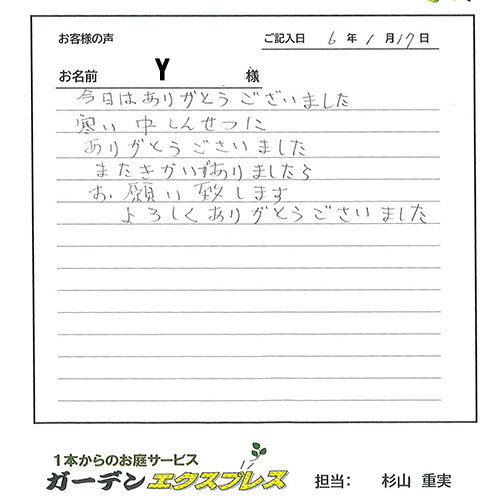 お客様の声 ご記入日 6年1月17日
お名前 Y 様
今日はありがとうございました
寒い中しんせつに
ありがとうございました
またきかいがありましたら
お願い致します
よろしくありがとうございました
1本からのお庭サービス
ガーデンエクスプレス 担当: 杉山 重実